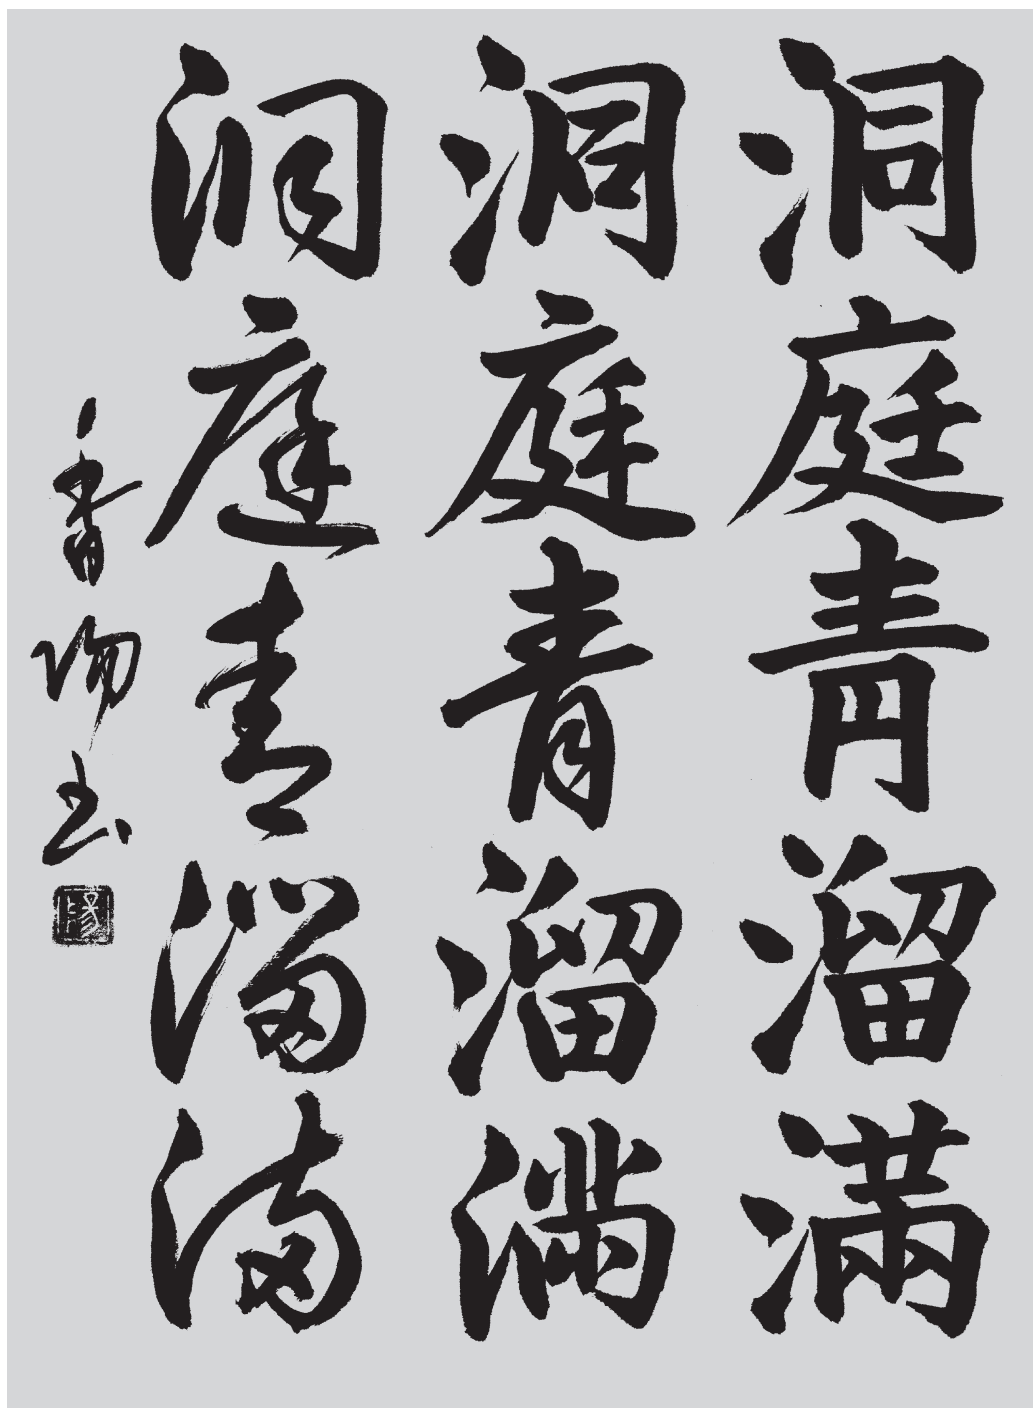 洞庭青溜満
洞庭青溜満
洞庭青溜満
書